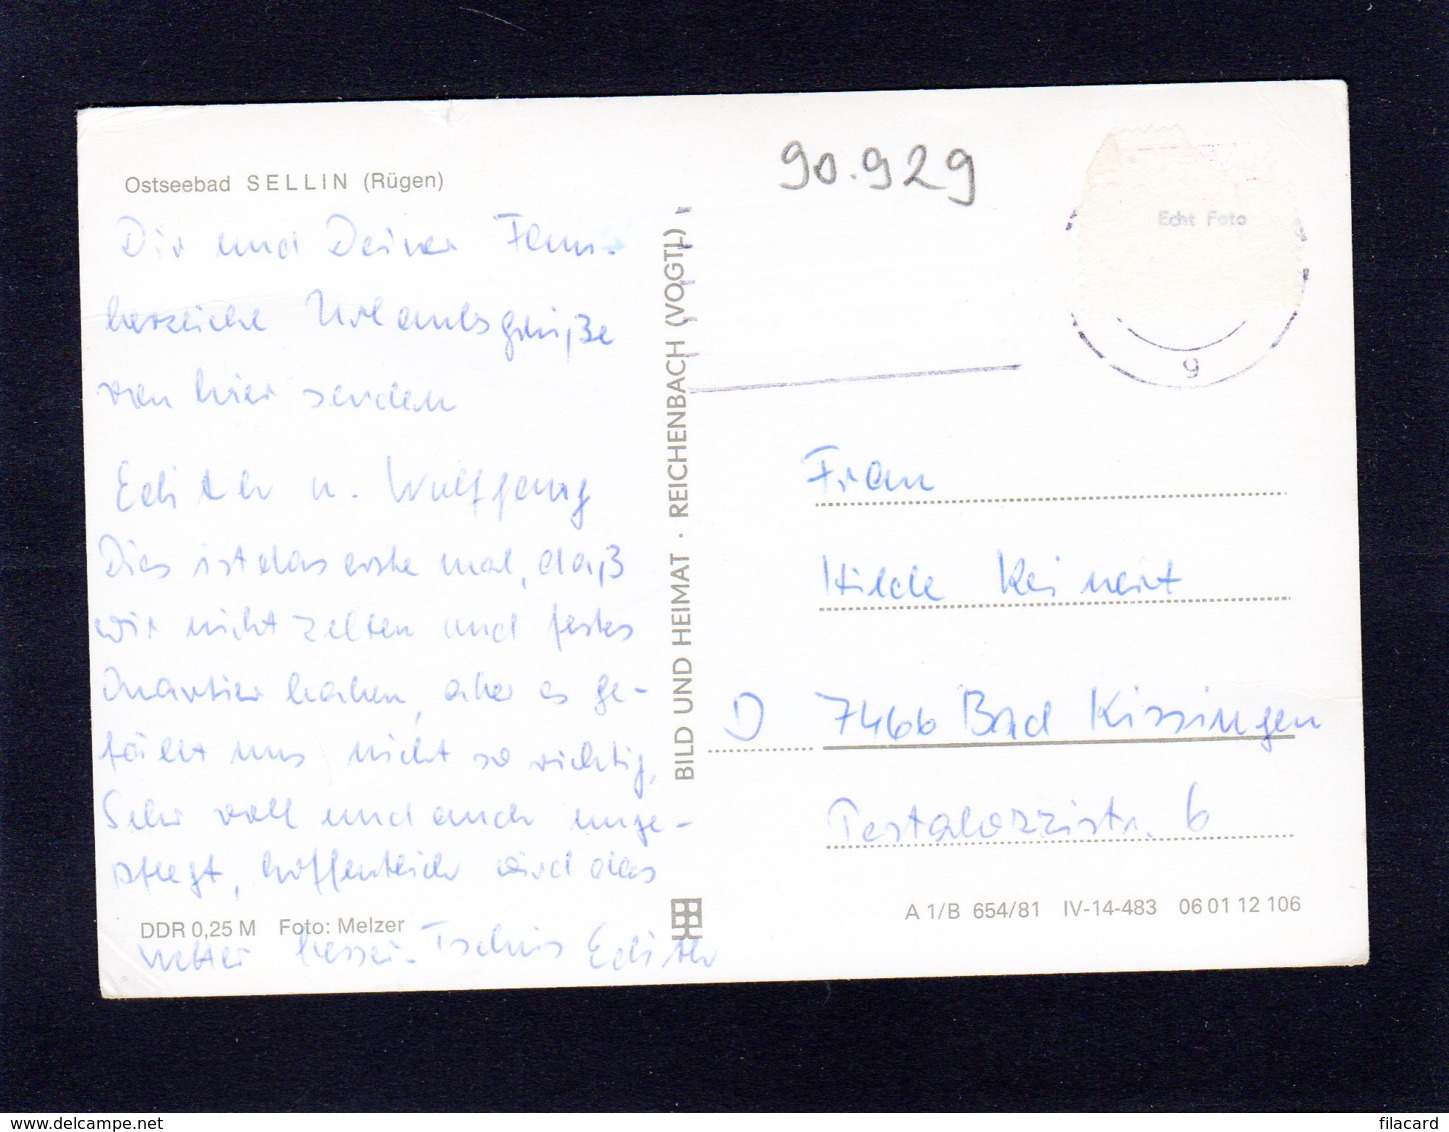 Ostseebad SELLIN (Rügen)
Dir und Deiner Fam.
herzliche Urlaubsgrüße
von hier senden
Edith u. Wolfgang
Dies ist das erste mal, daß
wir nicht zelten und festes
Quartier haben, aber es ge-
fällt uns nicht so richtig,
Sehr voll und auch unge-
pflegt, hoffentlich wird das
Wetter besser. Tschüs Edith
DDR 0,25 M Foto: Melzer
BILD UND HEIMAT · REICHENBACH (VOGTL)
90.929
Echt Foto
g
Frau
Hilde
D 7466 Bad Kissingen
Pestalozzistr. 6
A 1/B 654/81 IV-14-483 06 01 12 106
filacard
www.delcampe.net